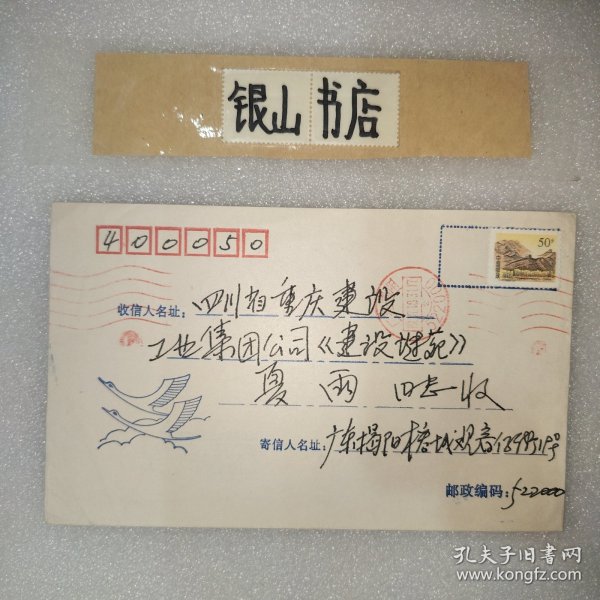 银山书店
400050
收信人名址:四川省重庆建设
工业集团公司《建设诗苑》
夏雨 同志收
寄信人名址:广东揭阳榕城观音
邮政编码:522000
50分
孔夫子旧书网
www.kongfz.com